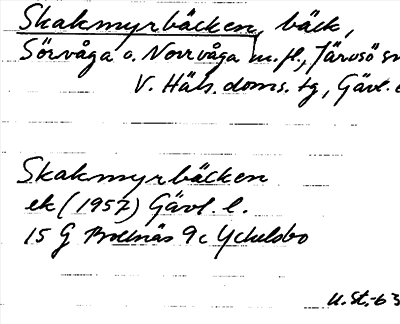 Skakmyrbäcken, bäck,
Sörvåga o. Norrvåga m.fl., Järvsö sn
V. Häls. doms. tg, Gävl.
Skakmyrbäcken
ek (1957) Gävl. l.
15 G Bollnäs 9c Yckelsbo
U.St.-63